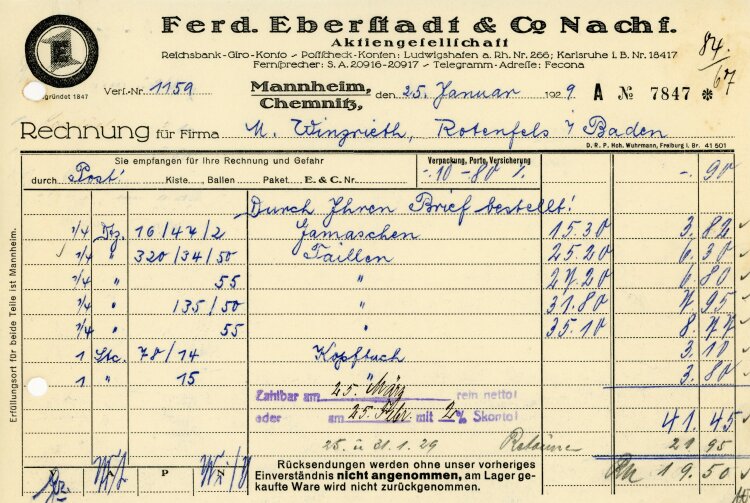 Ferd. Eberstadt & Co Nachf.
Aktiengesellschaft
Reichsbank-Giro-Konto – Postscheck-Konten: Ludwigshafen a. Rh. Nr. 266; Karlsruhe i. B. Nr. 18417
Fernsprecher: S.A. 20916-20917 – Telegramm-Adresse: Fecona
84/67
gegründet 1847
Vers.-Nr. 1159 Mannheim, Chemnitz, den 25. Januar 1929 A № 7847 *
Rechnung für Firma M. Wingrieth, Rotenfels i/ Baden
D. R. P. Hch. Wuhrmann, Freiburg i. Br. 41 501
Sie empfangen für Ihre Rechnung und Gefahr Verpackung, Porto, Versicherung
durch Post! Kiste Ballen Paket E. & C. Nr. -.10-80 -. 90
Durch Ihren Brief bestellt!
1/4 Dz. 16/44/2 Gamaschen 15.30 3.82
1/4 " 320/34/50 Taillen 25.20 6.30
1/4 " 55 " 27.20 6.80
1/4 " 135/50 " 31.80 7.95
1/4 " 55 " 35.10 8.77
1 Stc. 78/14 Kopftuch 3.10
1 " 15 " 3.80
Zahlbar am 25. März rein netto!
oder am 25. Febr. mit 2% Skonto! 41.45
25. u 31.1.29 Retoure 21 95
19.50
P
Rücksendungen werden ohne unser vorheriges
Einverständnis nicht angenommen, am Lager ge-
kaufte Ware wird nicht zurückgenommen.
Erfüllungsort für beide Teile ist Mannheim.